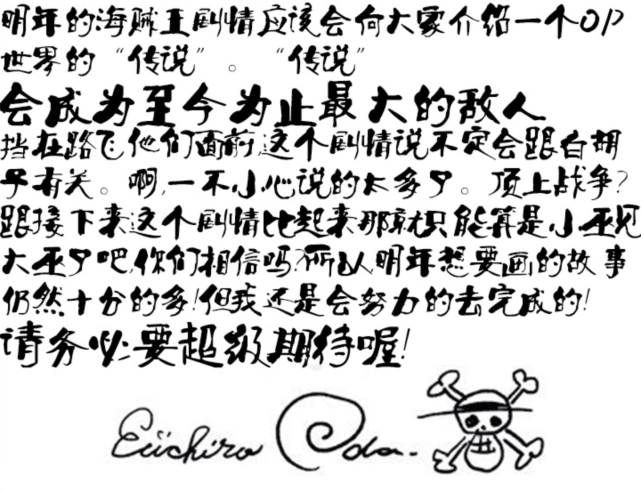 明年的海贼王剧情应该会向大家介绍一个OP
世界的“传说”。“传说”
会成为至今为止最大的敌人
挡在路飞他们面前这个剧情说不定会跟白胡
子有关。啊,一不小心说的太多了。顶上战争?
跟接下来这个剧情比起来那就只能算是小巫见
大巫了吧,你们相信吗?所以明年想要画的故事
仍然十分的多!但我还是会努力的去完成的!
请务必要超级期待喔!
Eiichiro Oda.